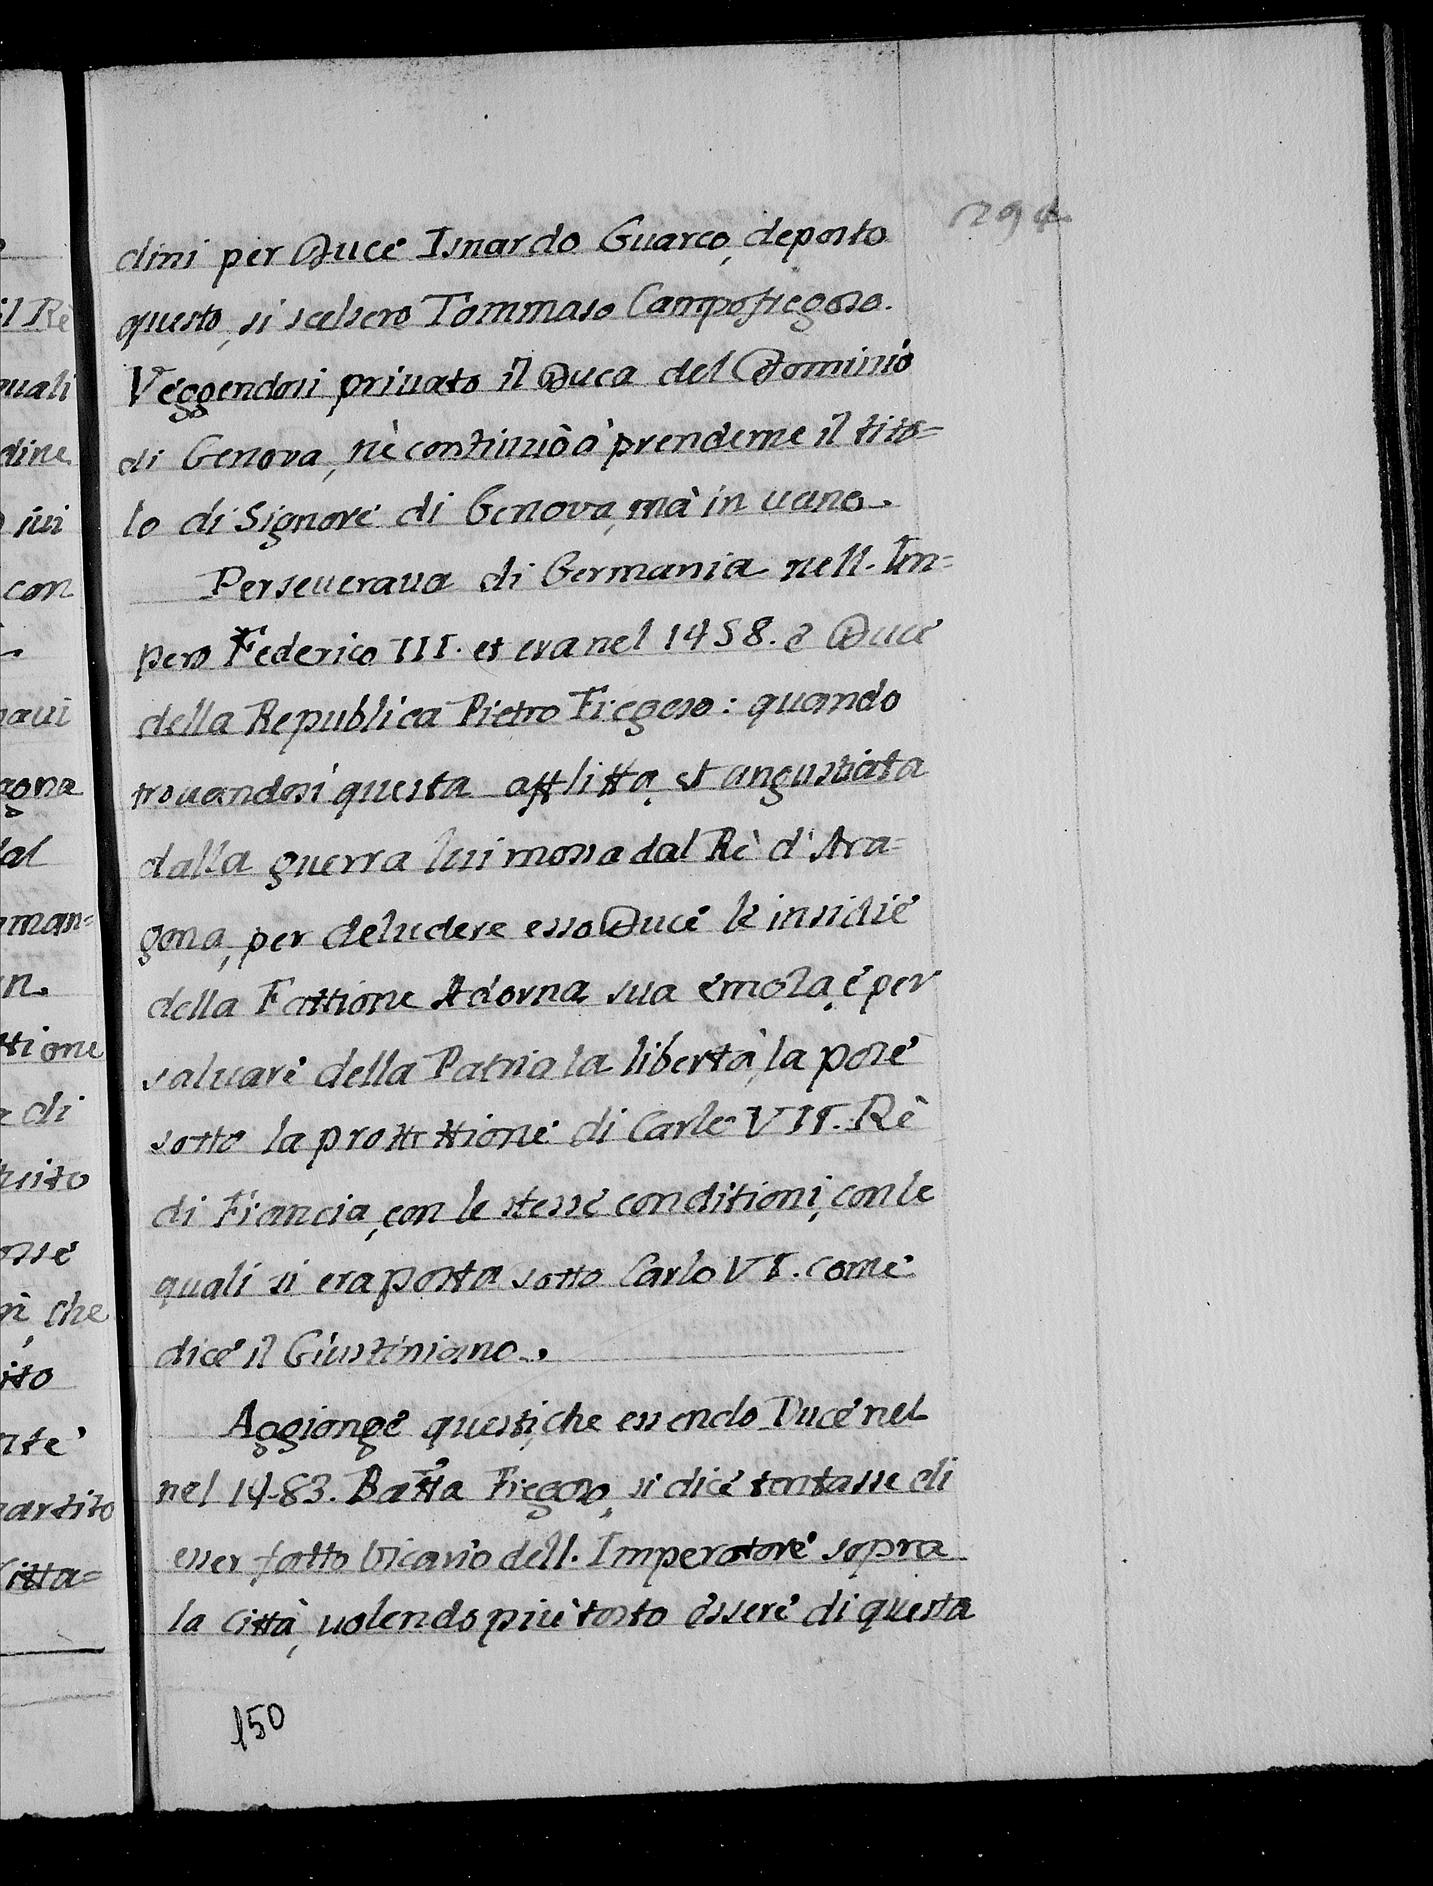 294
dini per Duce Isnardo Guarco, deposto
questo, si scelsero Tommaso Campofregoso.
Veggendosi priuato il Duca del Dominio
di Genova, nè continuò à prenderne il tito=
lo di Signore di Genova, mà in uano.
Perseuerava di Germania nell. Im=
pero Federico III. et era nel 1458. e Duce
della Republica Pietro Fregoso: quando
trouandosi questa afflitta, et angustiata
dalla guerra lui mossa dal Rè d'Ara=
gona, per deludere esso Duce le insidie
della Fattione Adorna sua emola, e per
saluare della Patria la libertà, la pose
sotto la prottettione di Carlo VII. Rè
di Francia, con le stesse conditioni, con le
quali si era posta sotto Carlo VI. come
dice il Giustiniano.
Aggionge questi, che essendo Duce nel
nel 1483. Batta Fregoso, si dice tentasse di
esser fatto Vicario dell. Imperatore sopra
la Città, uolendo più tosto essere di questa
150
il Rè
quali
dine
iui
con
naui
agona
dal
man=
n.
ttione
di
osse
che
nte
partito
Citta=